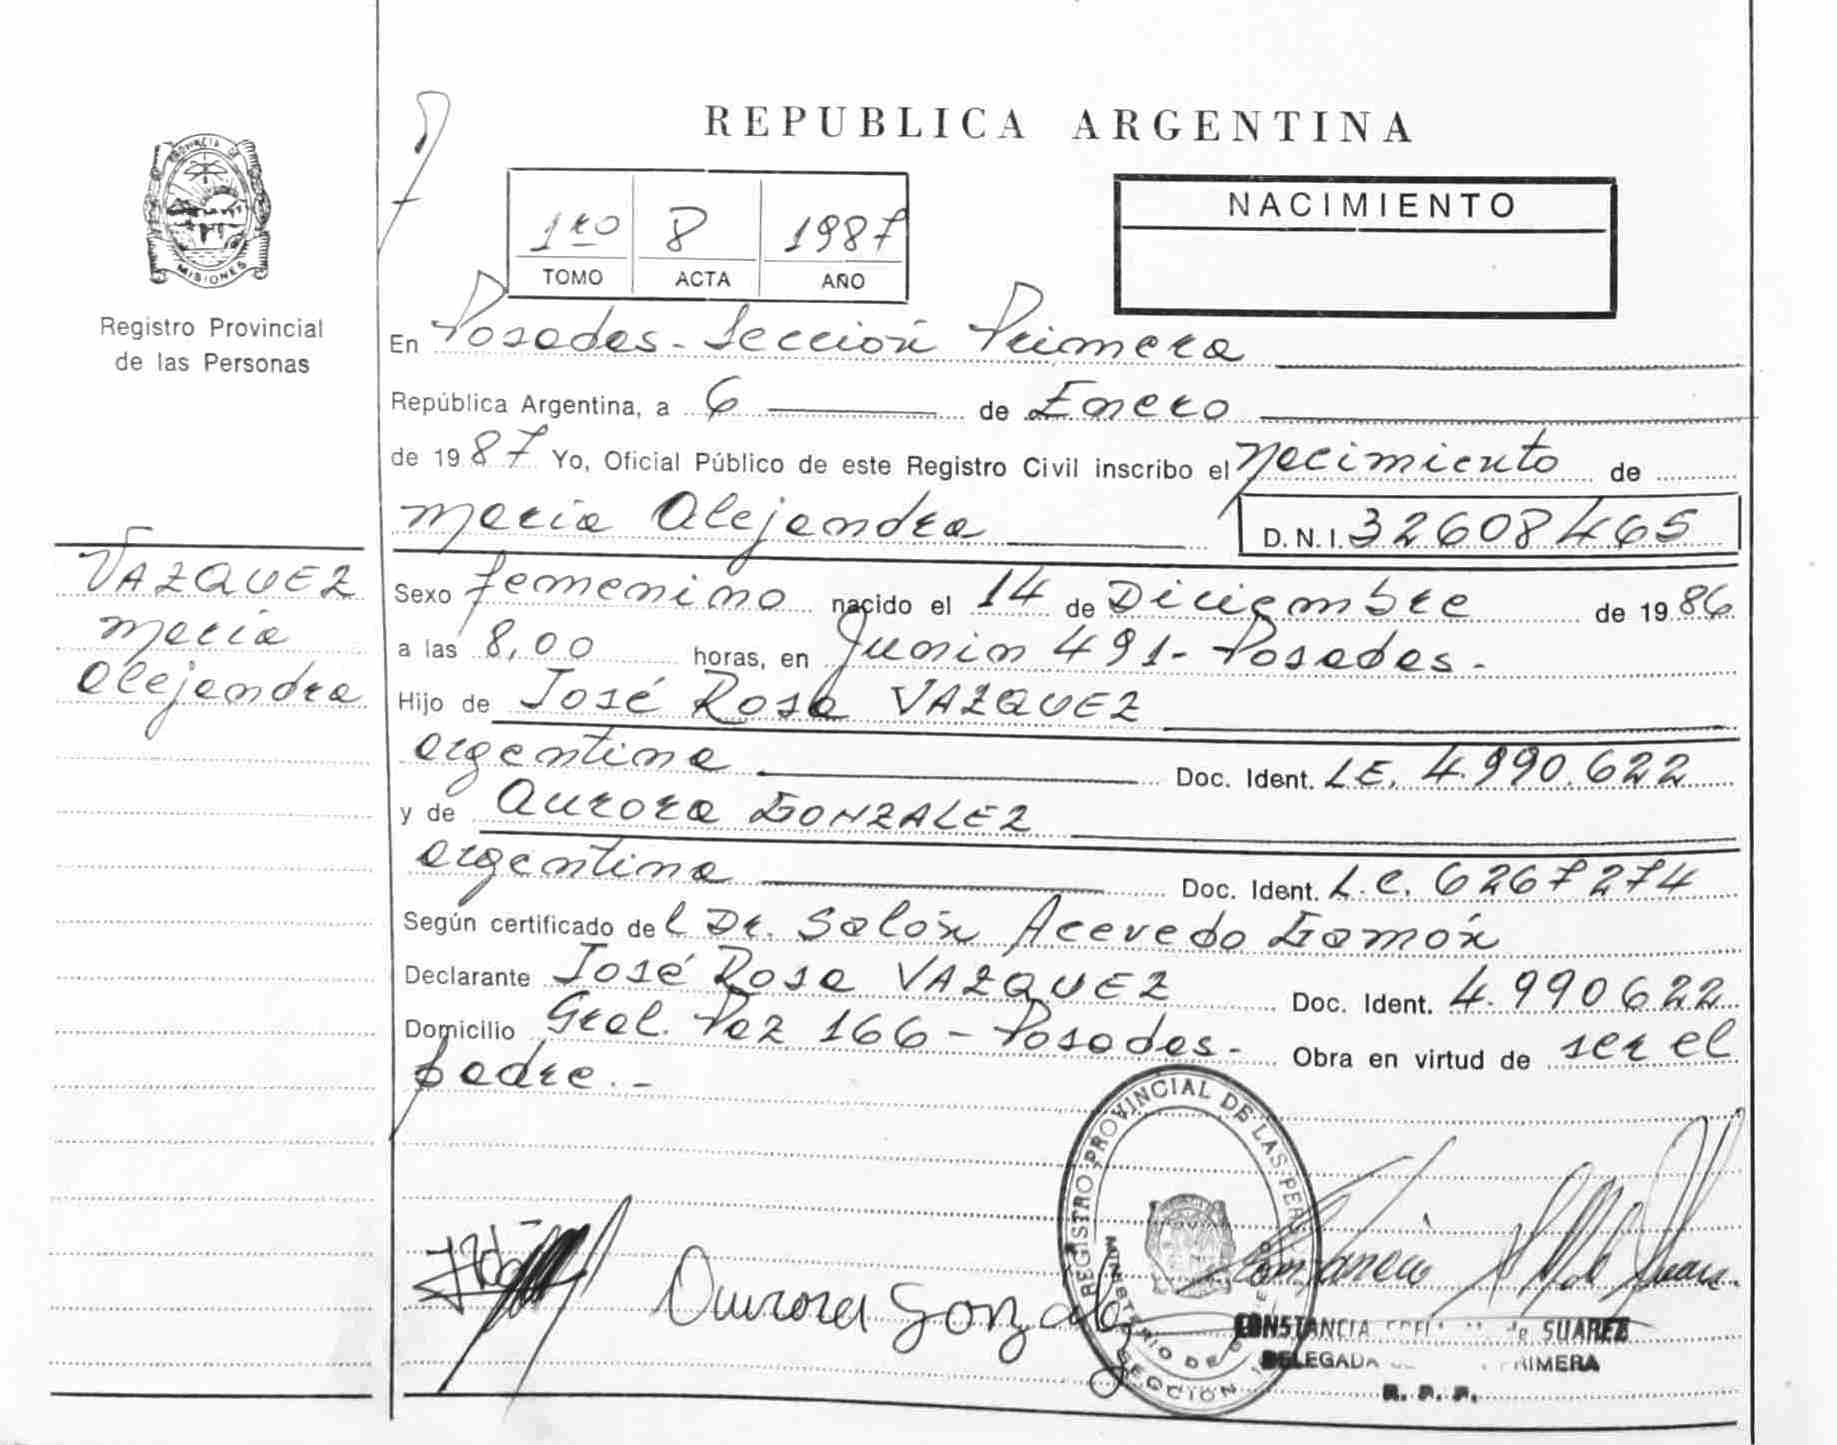 REPUBLICA ARGENTINA
PROVINCIA DE
MISIONES
Registro Provincial
de las Personas
1ro 8 1987
TOMO ACTA AÑO
NACIMIENTO
En Posadas - Sección Primera
República Argentina, a 6 de Enero
de 1987 Yo, Oficial Público de este Registro Civil inscribo el nacimiento de
María Alejandra D.N.I. 32608465
VAZQUEZ
María
Alejandra
Sexo femenino nacido el 14 de Diciembre de 1986
a las 8,00 horas, en Junin 491 - Posadas.
Hijo de José Rosa VAZQUEZ
argentina Doc. Ident. L.E. 4.990.622
y de Aurora GONZALEZ
argentina Doc. Ident. L.C. 6267274
Según certificado del Dr. Acevedo Ramón
Declarante José Rosa VAZQUEZ Doc. Ident. 4.990622
Domicilio Gral. Paz 166 - Posadas. - Obra en virtud de ser el
padre. -
REGISTRO PROVINCIAL DE LAS PERS
MINISTERIO DE GOBIERNO
SECCIÓN 1
Aurora Gonzalez
CONSTANCIA de SUAREZ
DELEGADA PRIMERA
R. P. P.